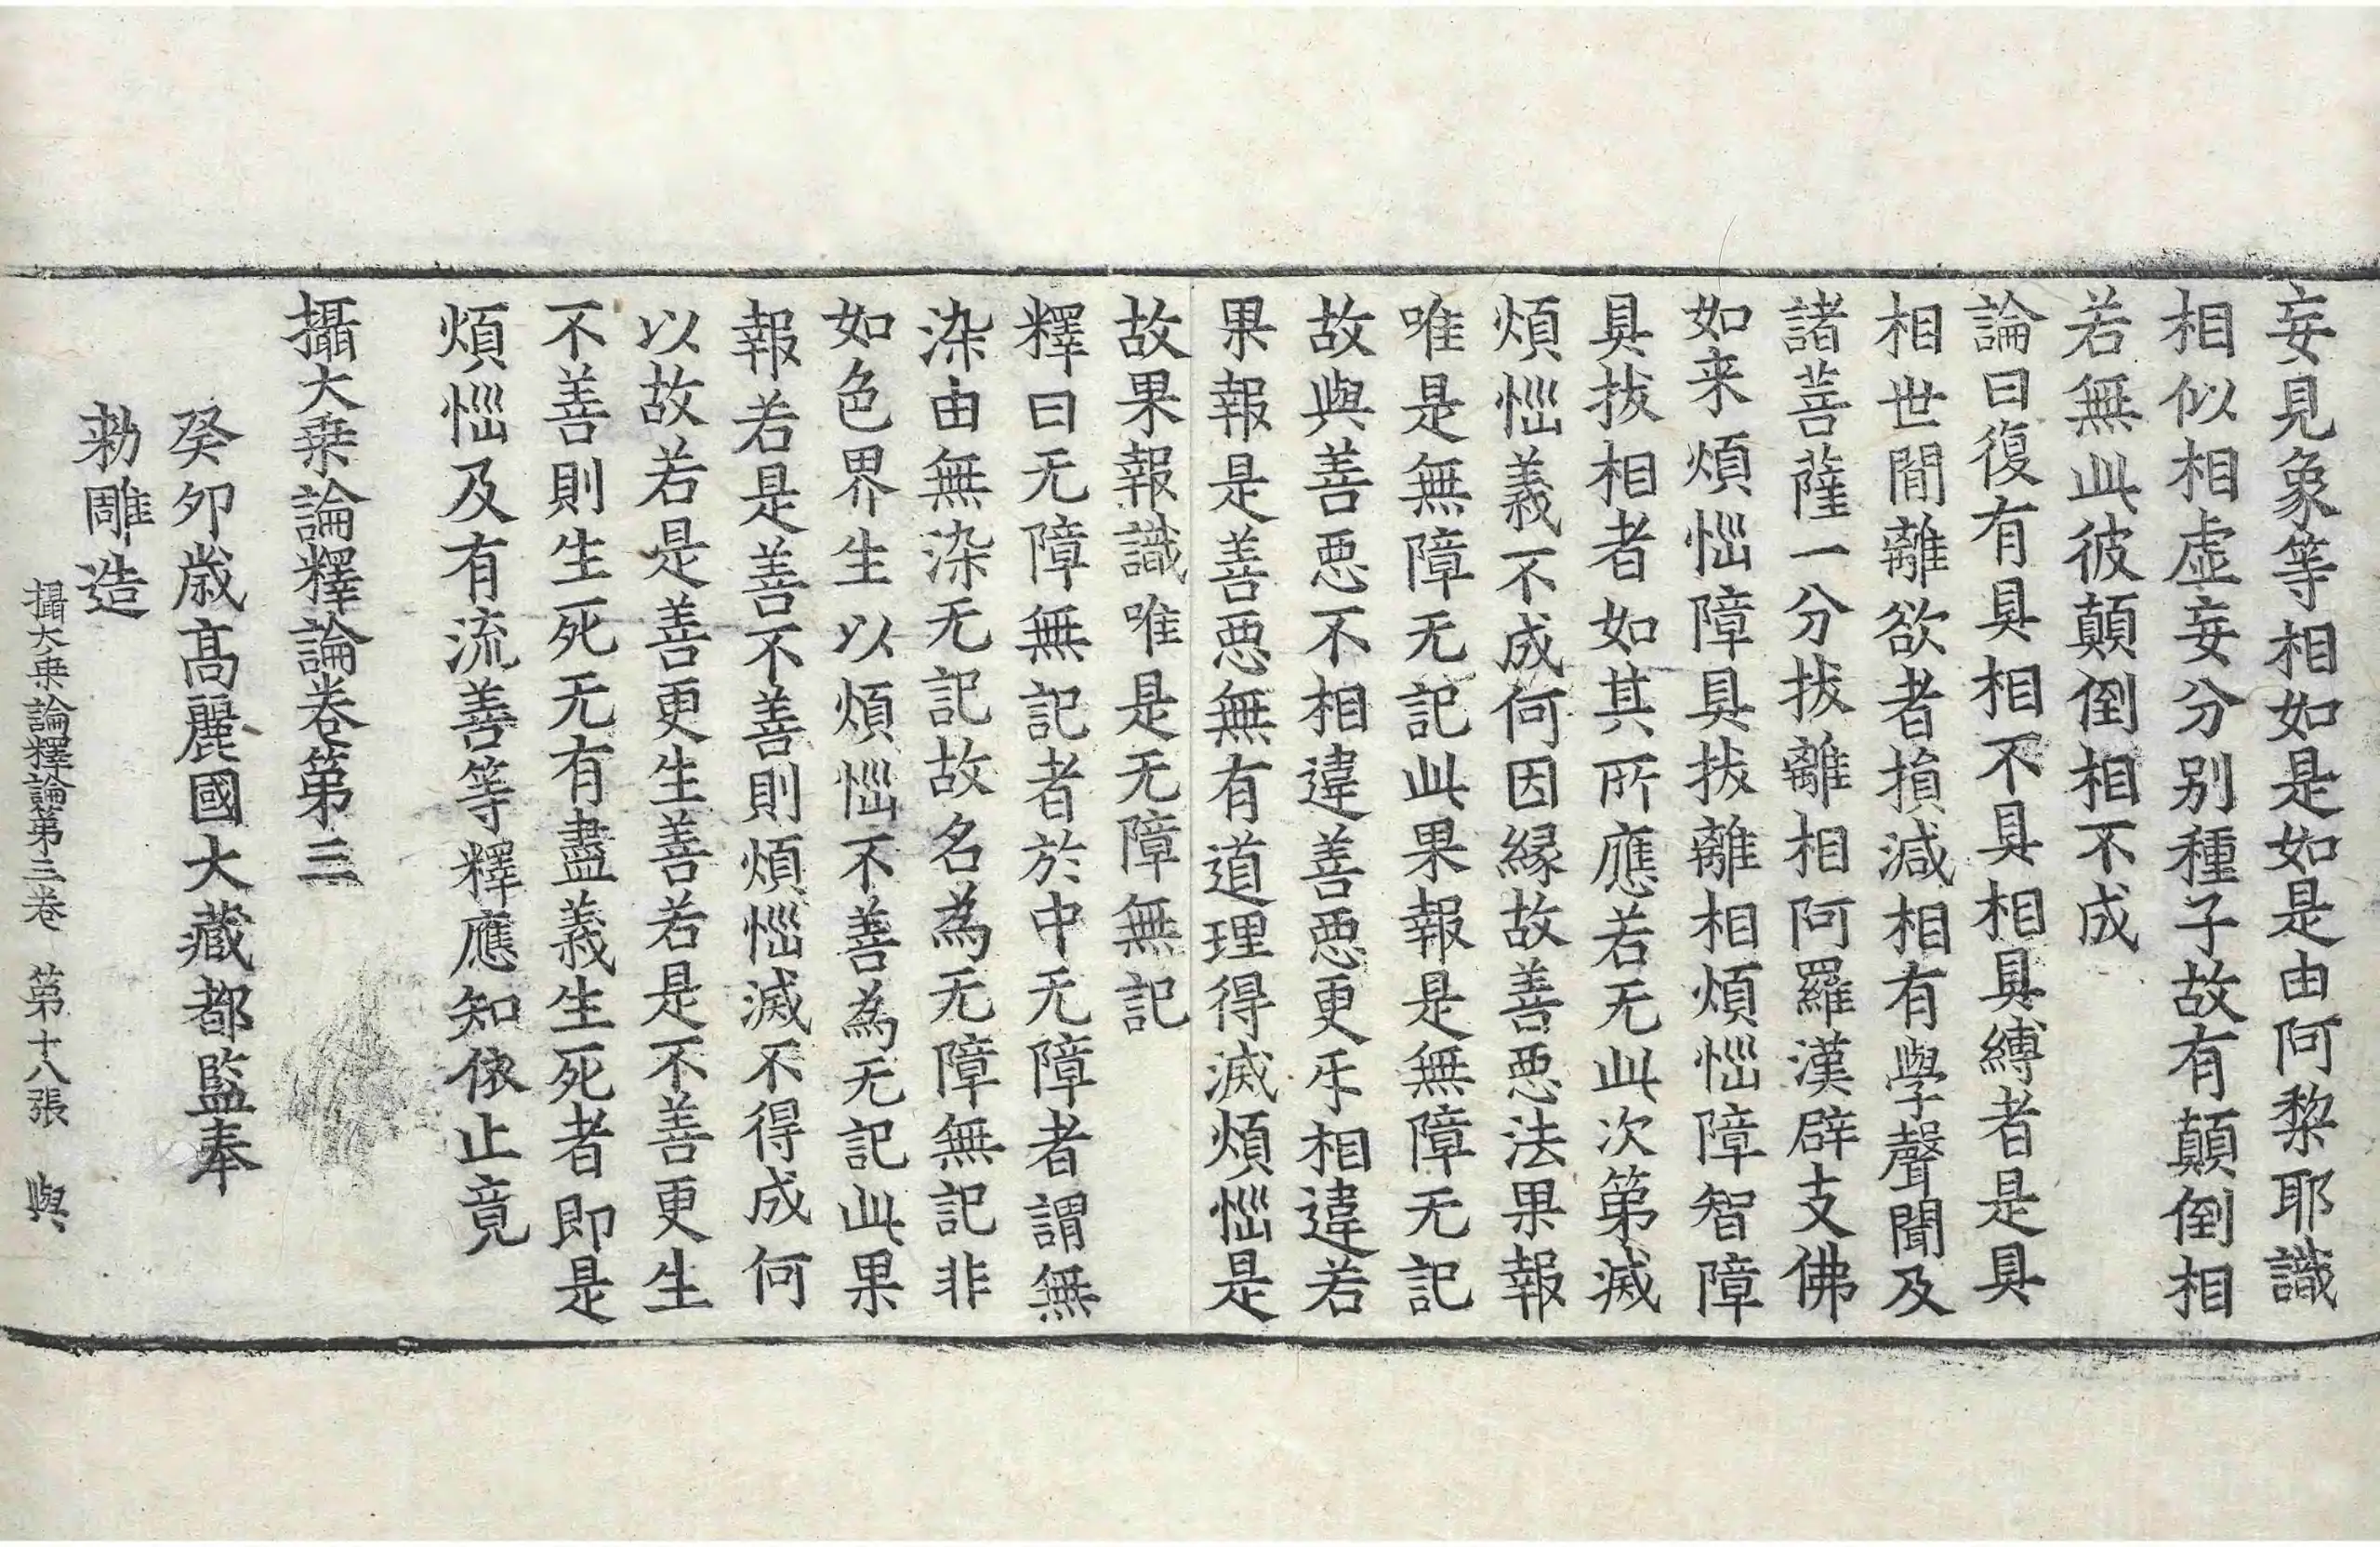 妄見象等相如是如是由阿黎耶識
相似相虛妄分別種子故有顛倒相
若無此彼顛倒相不成
論曰復有具相不具相具縛者是具
相世間離欲者損減相有學聲聞及
諸菩薩一分拔離相阿羅漢辟支佛
如来煩惱障具拔離相煩惱障智障
具拔相者如其所應若无此次第滅
煩惱義不成何因緣故善惡法果報
唯是無障无記此果報是無障无記
故與善惡不相違善惡更互相違若
果報是善惡無有道理得滅煩惱是
故果報識唯是无障無記
釋曰无障無記者於中无障者謂無
染由無染无記故名為无障無記非
如色界生以煩惱不善為无記此果
報若是善不善則煩惱滅不得成何
以故若是善更生善若是不善更生
不善則生死无有盡義生死者即是
煩惱及有流善等釋應知依止竟
攝大乗論釋論卷第三
癸卯歳高麗國大藏都監奉
勑雕造
攝大乗論釋論第三卷 第十八張 與